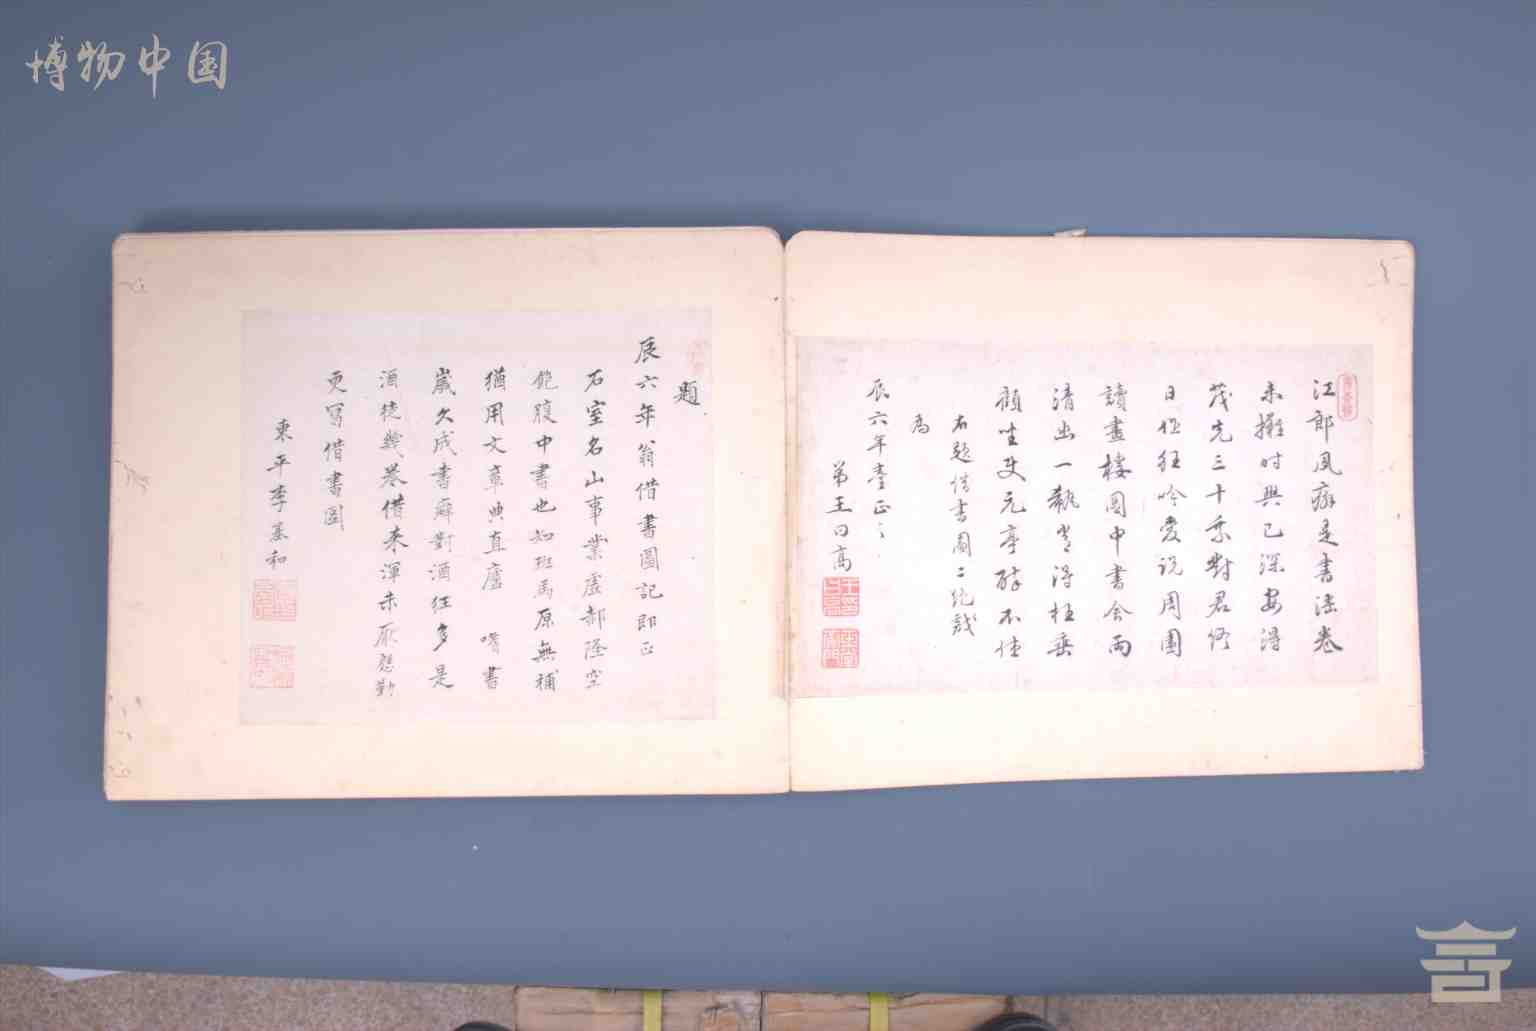 博物中国
江郎風癖是書法卷
未擁時興已深安得
茂先三十乘對君修
日恆狂吟愛說周園
讀畫樓圖中書舍兩
清出一執
頤性
右題借書圖二絕
為
辰六年臺正之
弟王曰高
題
辰六年翁借書圖記即正
石室名山事業虛郝隆空
飽腹中書也知班馬原無補
猶用文章典直廬 嗜書
歲久成書癖對酒狂多是
酒徒幾卷借來渾未厭慇勤
更寫借書圖
東平李基和